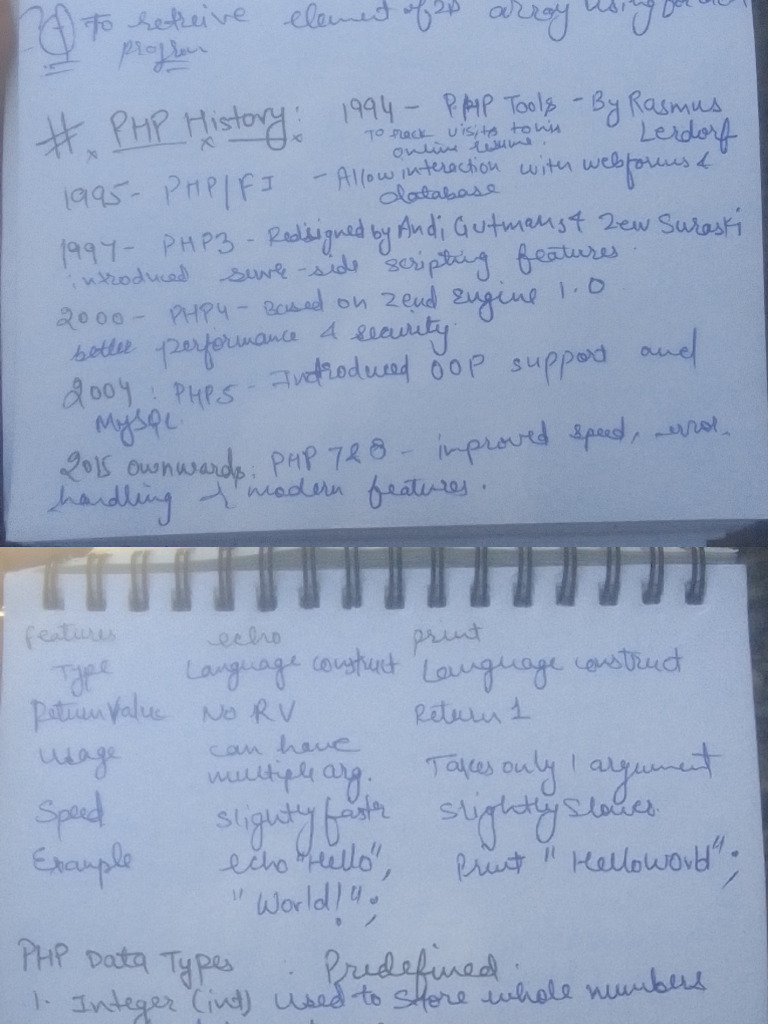 To retreive element of 2D array using
program
# PHP History: 1994 - PHP Tools - By Rasmus
Lerdorf
To track visits to his
online resume.
1995 - PHP/FI - Allow interaction with webforms &
database
1997 - PHP3 - Redsigned by Andi Gutmans & Zeev Suraski
introduced server-side scripting features.
2000 - PHP4 - Based on Zend Engine 1.0
better performance & security.
2004 : PHP5 - Introduced OOP support and
MySQL.
2015 ownwards: PHP 7 & 8 - improved speed, error
handling & modern features.
features echo print
Type Language construct Language construct
Return Value No RV Return 1
Usage can have
multiple arg. Takes only 1 argument
Speed slightly faster slightly slower
Example echo "Hello", Print "HelloWorld";
"World!";
PHP Data Types Predefined.
1. Integer (int) Used to store whole numbers